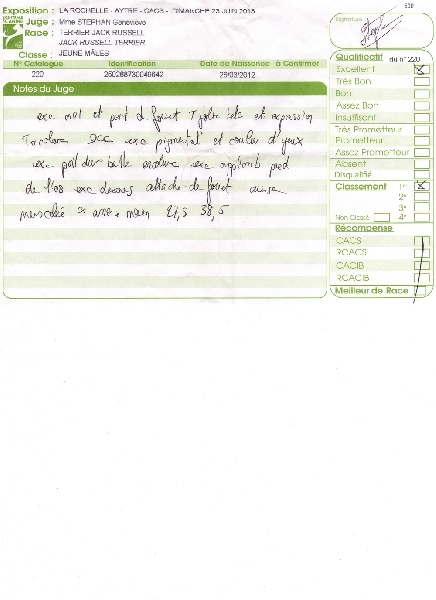 Exposition : LA ROCHELLE - AYTRE - CACS - DIMANCHE 23 JUIN 2013
Juge : Mme STEPHAN Geneviève
Race : TERRIER JACK RUSSELL
JACK RUSSELL TERRIER
Classe : JEUNE MÂLES
N° Catalogue Identification Date de Naissance à Confirmer
220 250268730040642 26/03/2012
Notes du Juge
exc mat et port de fouet Type tête et expression
Tricolore DCC exc pigmental et couleur d'yeux
exc poil dur belle exc aplombs pied
de l'os exc dessus attache de fouet cuisse
musclée 27,5 38,5
530
Signature :
Qualificatif du n°220
Excellent
Très Bon
Bon
Assez Bon
Insuffisant
Très Prometteur
Prometteur
Assez Prometteur
Absent
Disqualifié
Classement 1er
2e
3e
Non Classé 4e
Récompense
CACS
RCACS
CACIB
RCACIB
Meilleur de Race